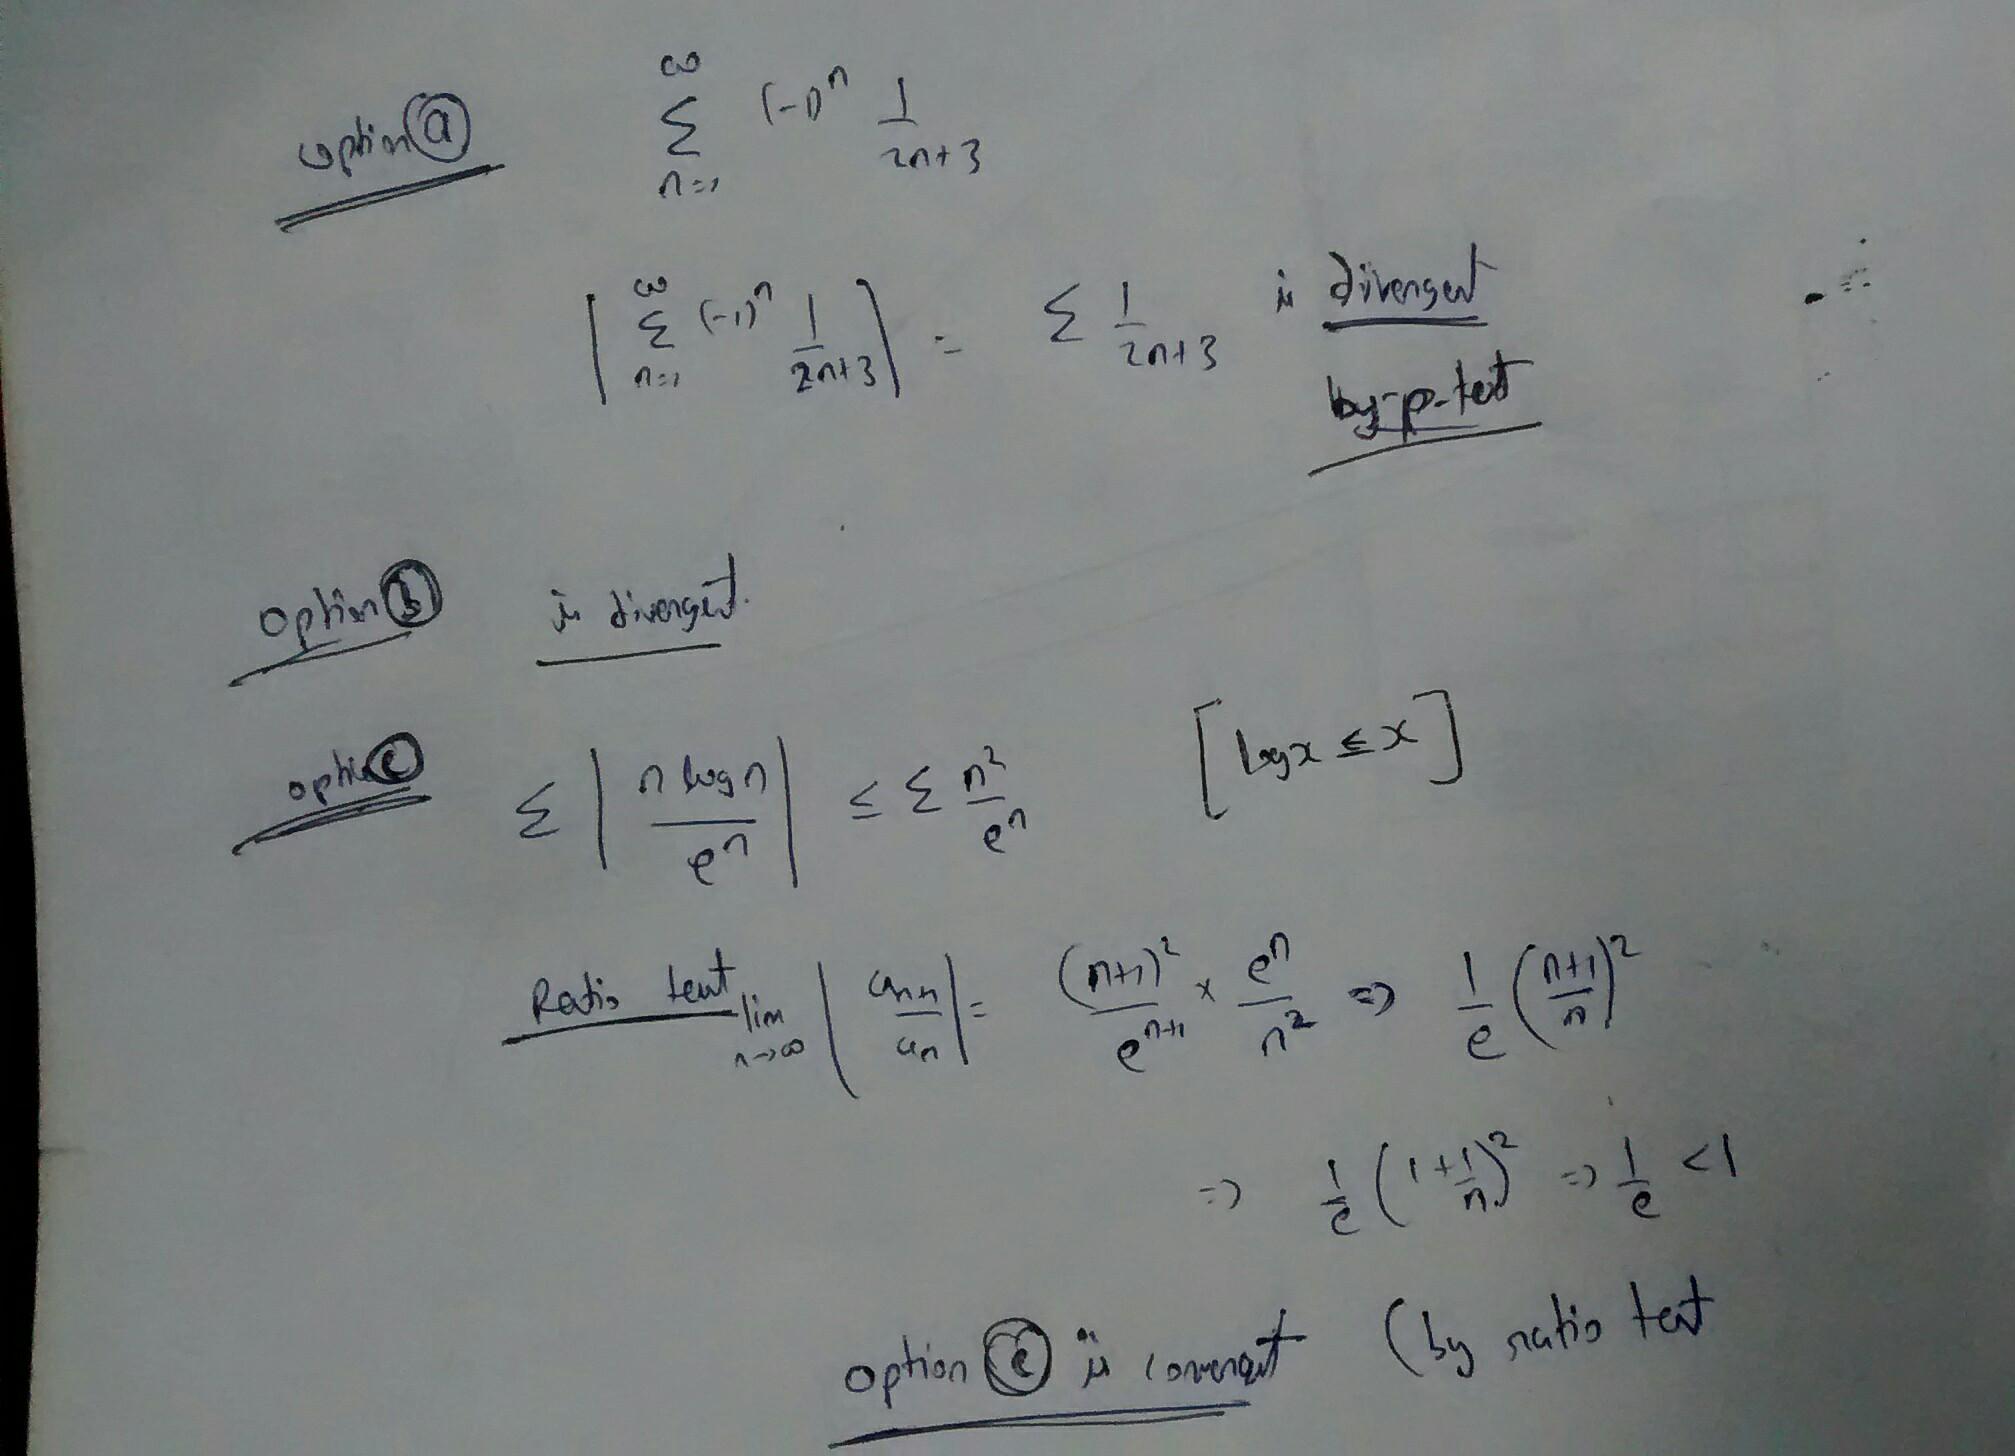 option ⓐ ∞ Σ n=1 (-1)ⁿ 1/2n+3
| ∞ Σ n=1 (-1)ⁿ 1/2n+3 | = Σ 1/2n+3 is divergent
by p-test
option ⓑ is divergent.
option ⓒ Σ | n log n / eⁿ | ≤ Σ n²/eⁿ [log x ≤ x]
Ratio test lim n→∞ | aₙ₊₁/aₙ | = (n+1)²/eⁿ⁺¹ × eⁿ/n² ⇒ 1/e (n+1/n)²
⇒ 1/e (1+1/n)² ⇒ 1/e < 1
option ⓒ is convergent (by ratio test